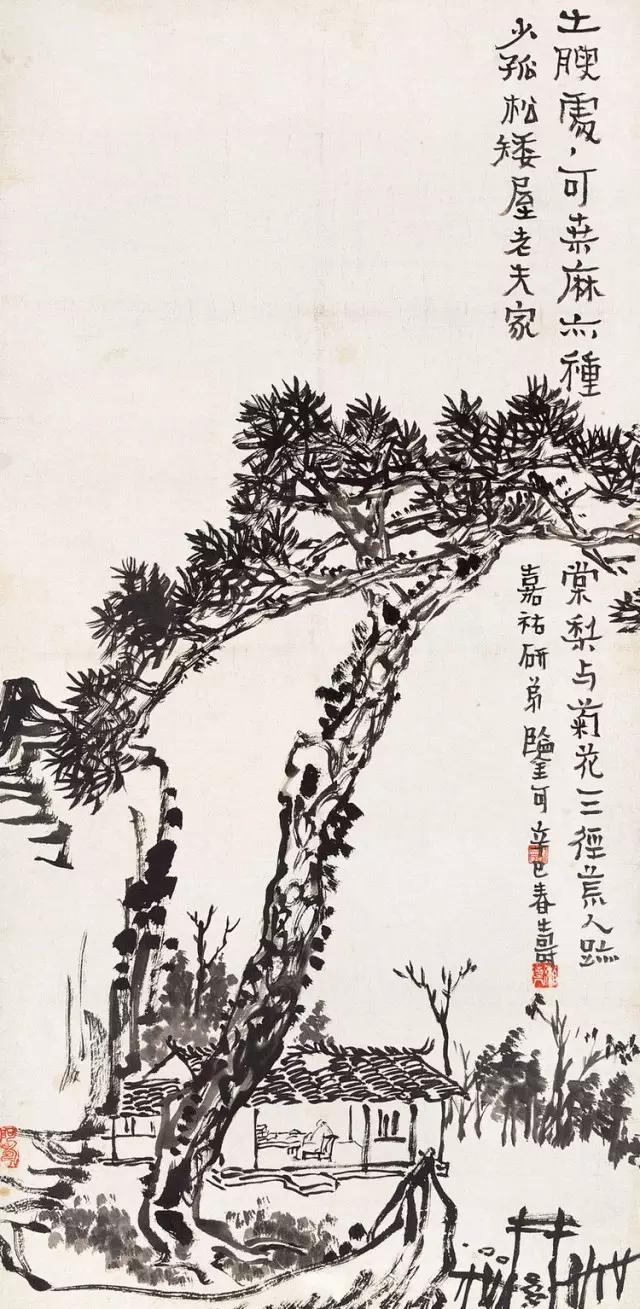 土腴處〻可桑麻亦種
棠梨与菊花一三徑荒人跡
少孤松矮屋老夫家
嘉祐研弟鑒可辛巳春壽